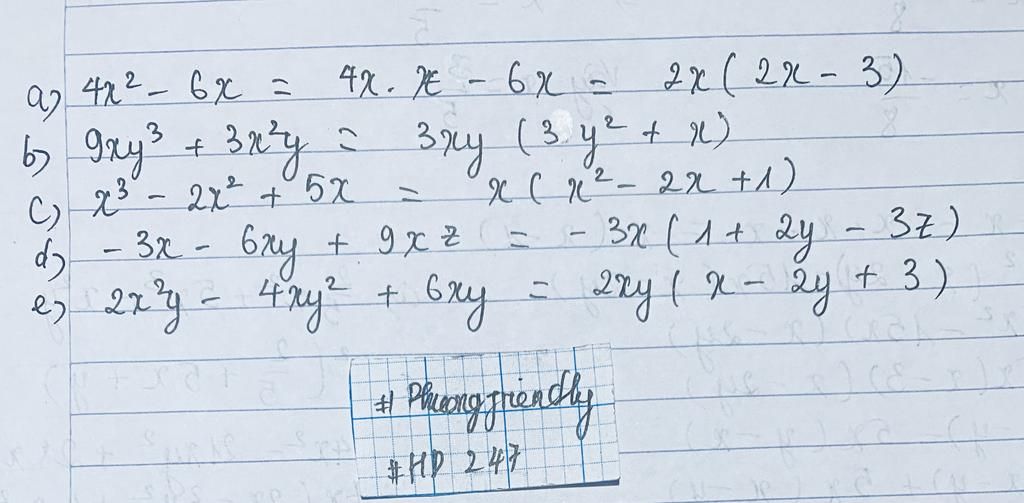 a) 4x² - 6x = 4x . x - 6x = 2x ( 2x - 3)
b) 9xy³ + 3x²y = 3xy (3y² + x)
c) x³ - 2x² + 5x = x ( x² - 2x + 1)
d) - 3x - 6xy + 9xz = - 3x ( 1 + 2y - 3z)
e) 2x²y - 4xy² + 6xy = 2xy ( x - 2y + 3)
# Phuongfriendly
#HD 247